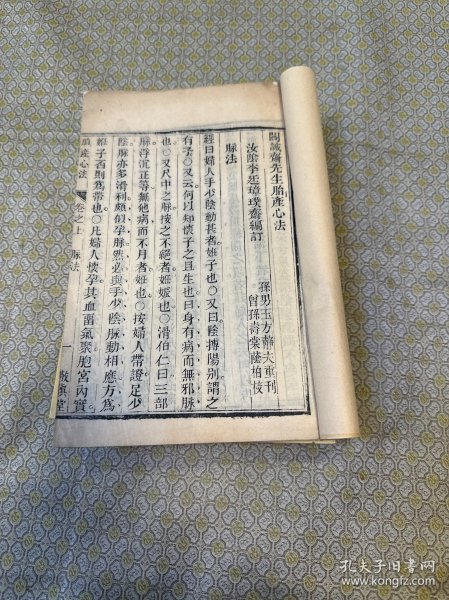 閻誠齋先生胎產心法
汝陰李延璋璞齋編訂
孫男玉方麟大重刊
曾孫壽棠蔭柏校
脉法
經曰婦人手少陰動甚者姙子也○又曰陰搏陽別謂之
有子○又云何以知懷子之且生也曰身有病而無邪脉
也○又尺中之脉按之不絕者姙娠也○滑伯仁曰三部
脉浮沉正等無他病而不月者姙也○按婦人帶證足少
陰脉亦多滑利頗似孕脉然必與手少陰脉動相應方爲
姙子否則爲帶也○凡婦人懷孕其血畱氣聚胞宮內實
胎產心法
卷之上
脉法
一
敬慎堂
孔夫子旧书网
www.kongfz.com